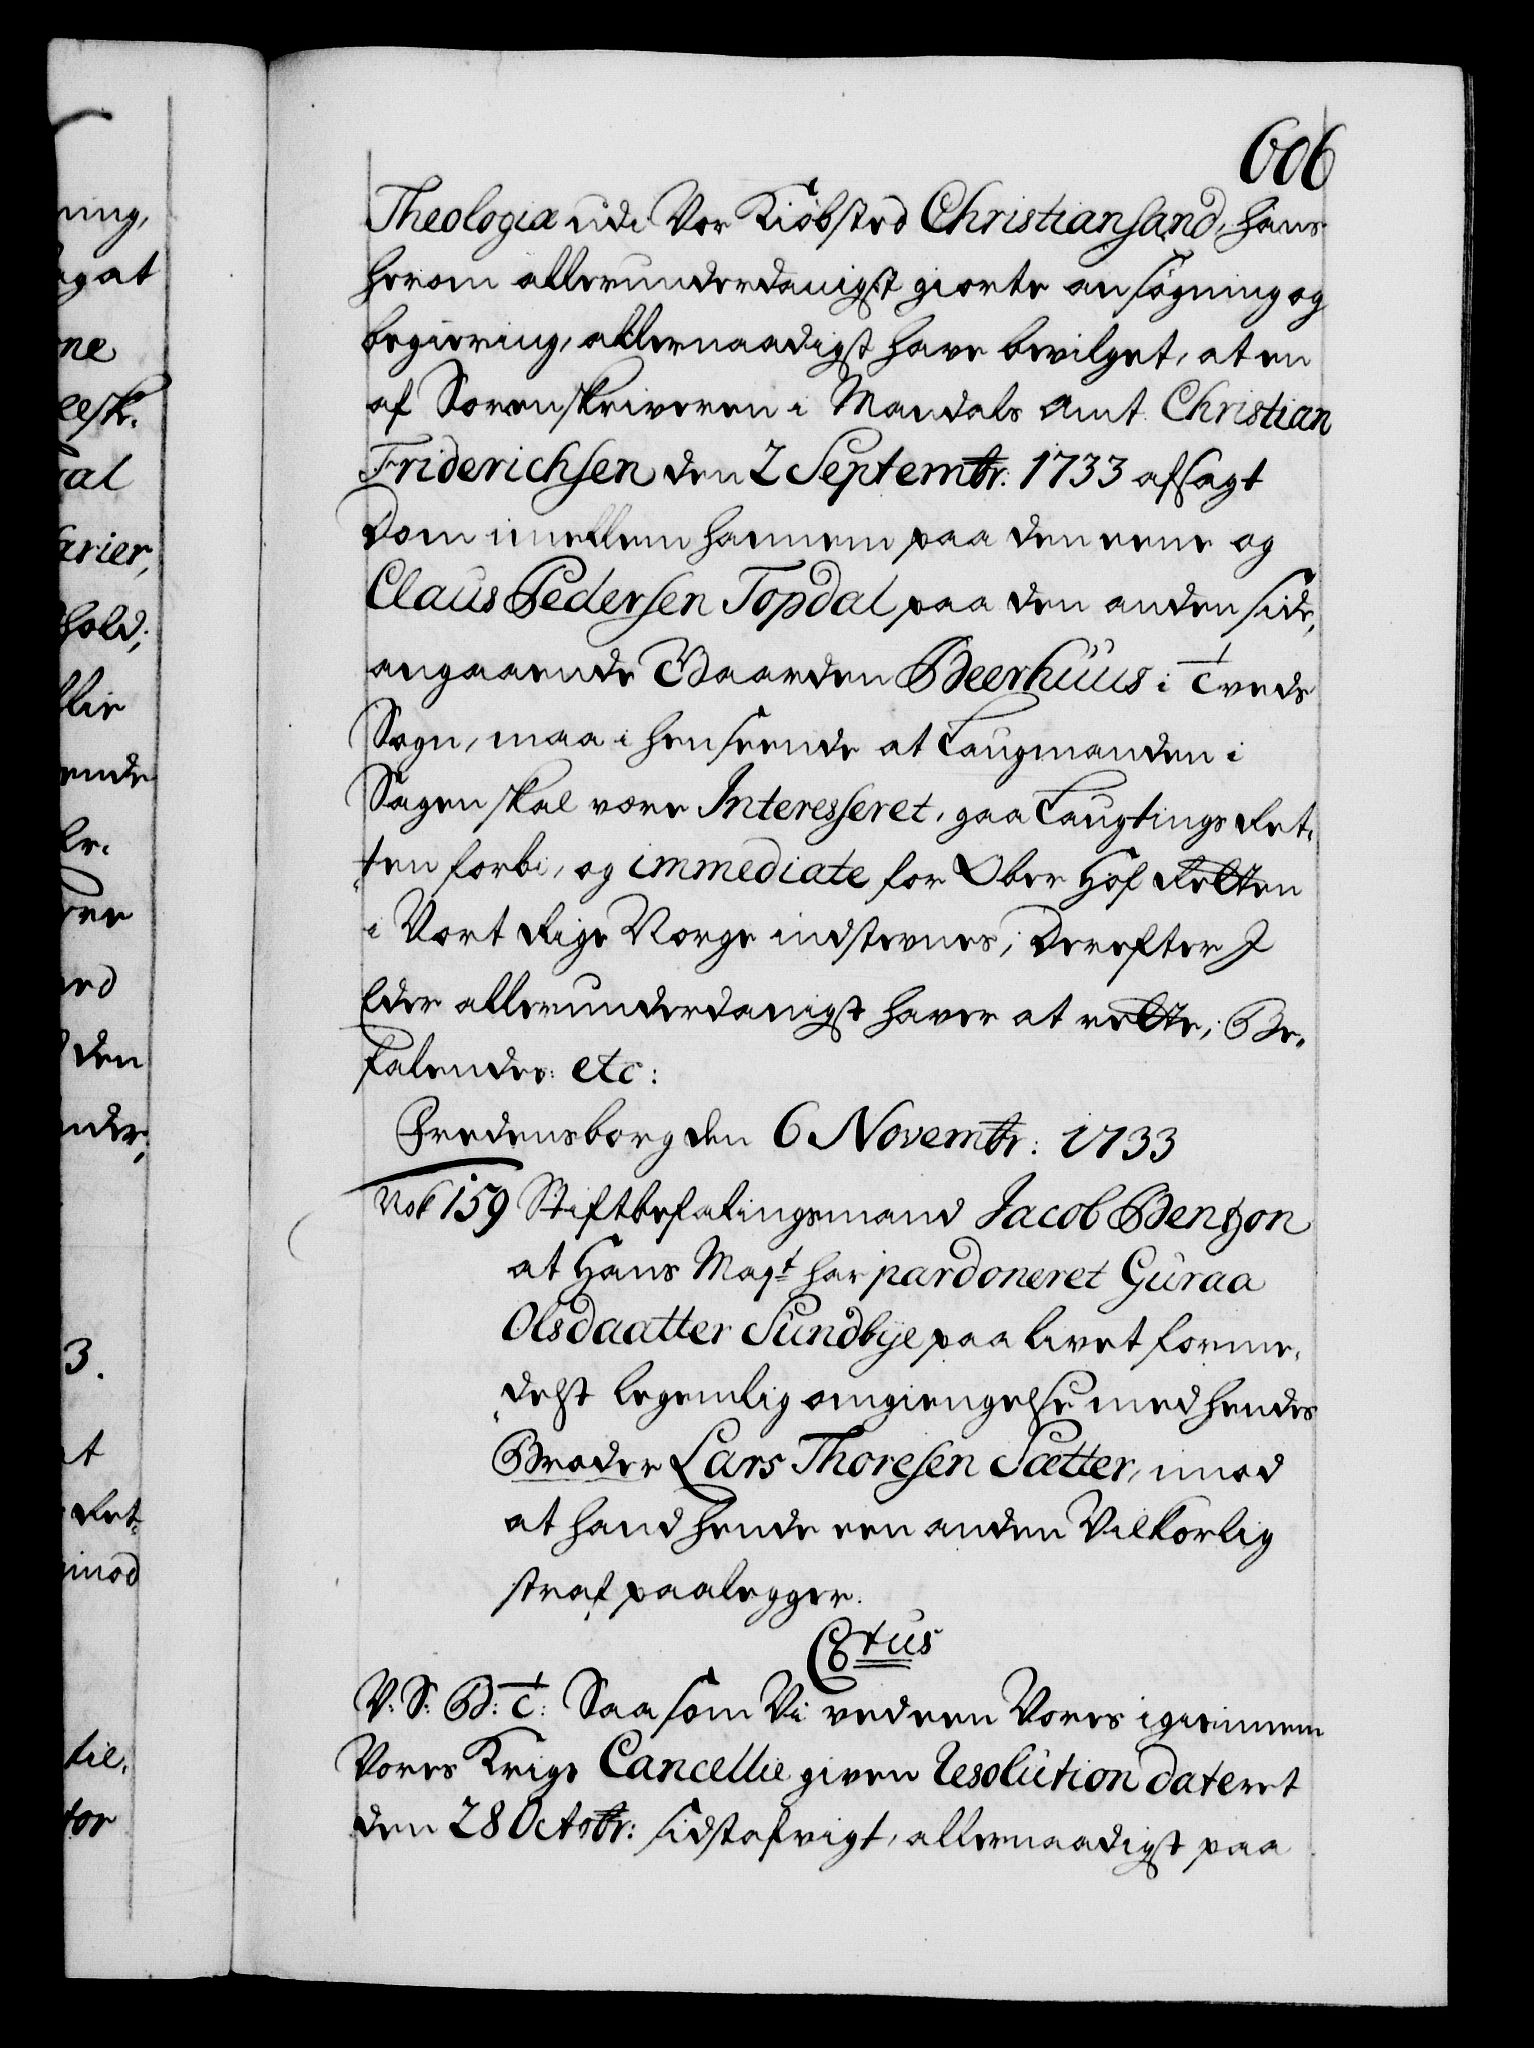 606
Theologiæ udi Vor Kiöbsted Christiansand, hans
herom allerunderdanigst giorte ansøgning og
begiering, allernaadigst have bevilget, at en
af Sorenskriveren i Mandals Amt Christian
Friderichsen den 2 Septembr: 1733 afsagt
Dom imellem hannem paa den eene og
Claus Pedersen Topdal paa den anden side,
angaaende Gaarden Beerhuus i Tveds
Sogn, maa i henseende at Laugmanden i
Sagen skal være Interesseret, gaa Laugtings Ret-
ten forbi, og immediate for Ober Hof Retten
i Vort Rige Norge indstevnes; Derefter I
Eder allerunderdanigst haver at rette; Be-
falendes: etc:
Fredensborg den 6 Novembr: 1733
No 159 Stiftbefalingsmand Jacob Bentzon
at Hans Mayt har pardoneret Guraa
Olsdaatter Sundbye paa livet forme-
delst legemlig omgiengelse med hendes
Broder Lars Thoresen Sætter, imod
at hand hende een anden Vilkorlig
straf paalegger.
C8tus
V: S: B: T: Saasom Vi ved een Vores igiennem
Vores Krigs Cancellie given Resolution dateret
den 28 Octobr: sidstafvigt, allernaadigst paa
ning,
ne
esk.
al
arier,
hold;
lie
ende
er
ed
den
nder,
3.
Ret-
imod
til-
for